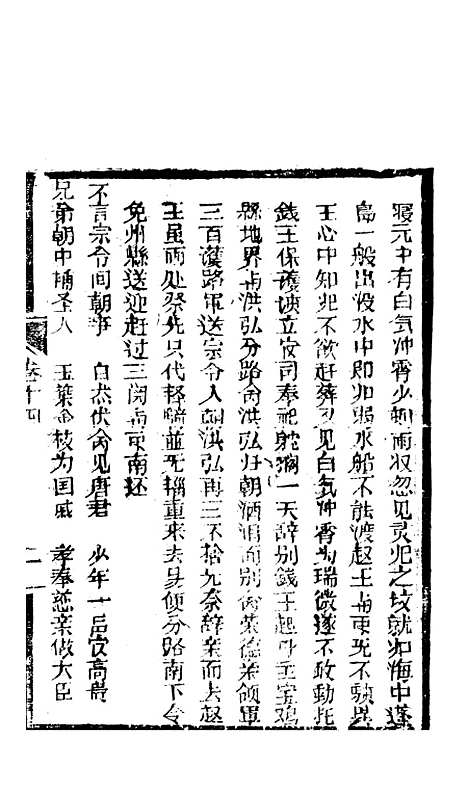 寝元中有白気冲霄少頃雨収忽见灵児之坟就如海中蓬
島一般出没水中即如弱水船不能渡赵王再更死不駭異
王心中知児不欲赶葬又见白気冲霄为瑞徵遂不敢動托
錢王保護坟立安司奉祀躭擱一天辞别錢王起身至宝鸡
縣地界与洪弘分路命洪弘归朝洒泪而别命業德業領軍
三百護路軍送宗令人朝洪弘再三不捨无奈辞業而去赵
王虽而处祭先只代軽騎並无輜重来去易便分路南下令
免州縣送迎赶过三関再更南还
不言宗令间朝事 白杰伏命见唐君 少年一品官高貴
兄弟朝中稱圣人 玉葉金枝为国戚 孝奉慈亲做大臣
卷十四 二